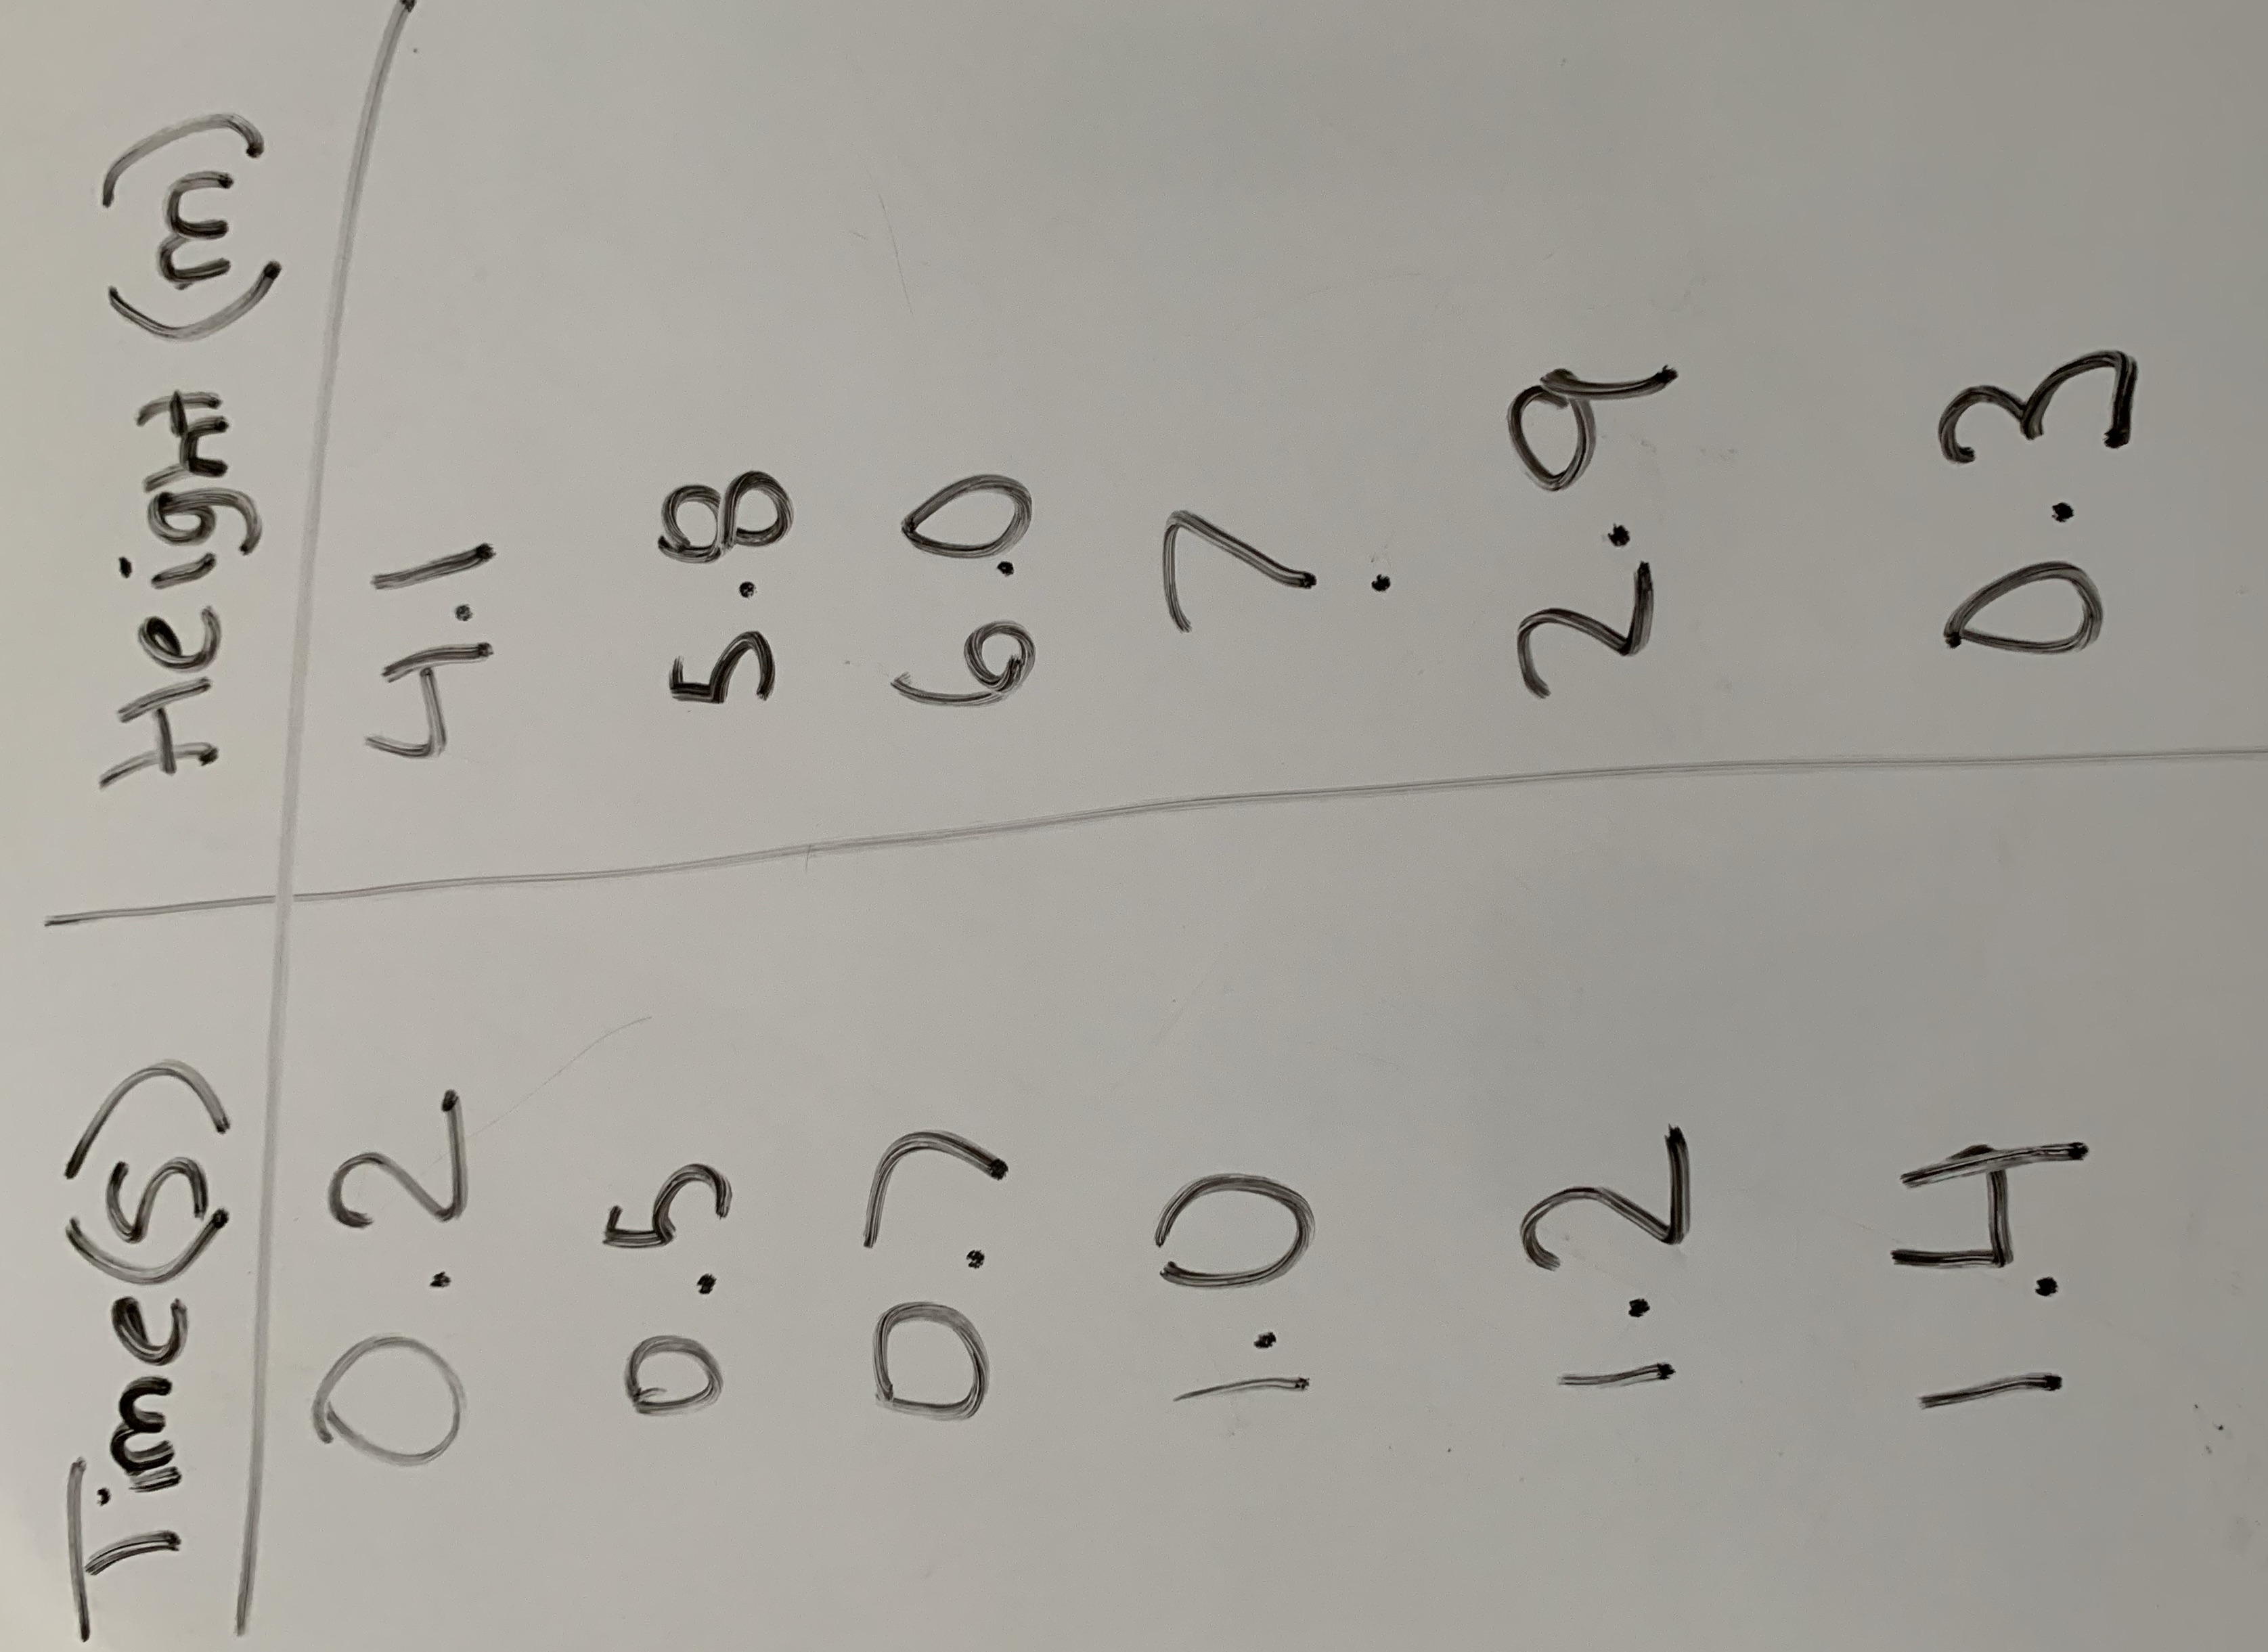 Time(s) Height (m)
0.2 4.1
0.5 5.8
0.7 6.0
1.0 ?
1.2 2.9
1.4 0.3